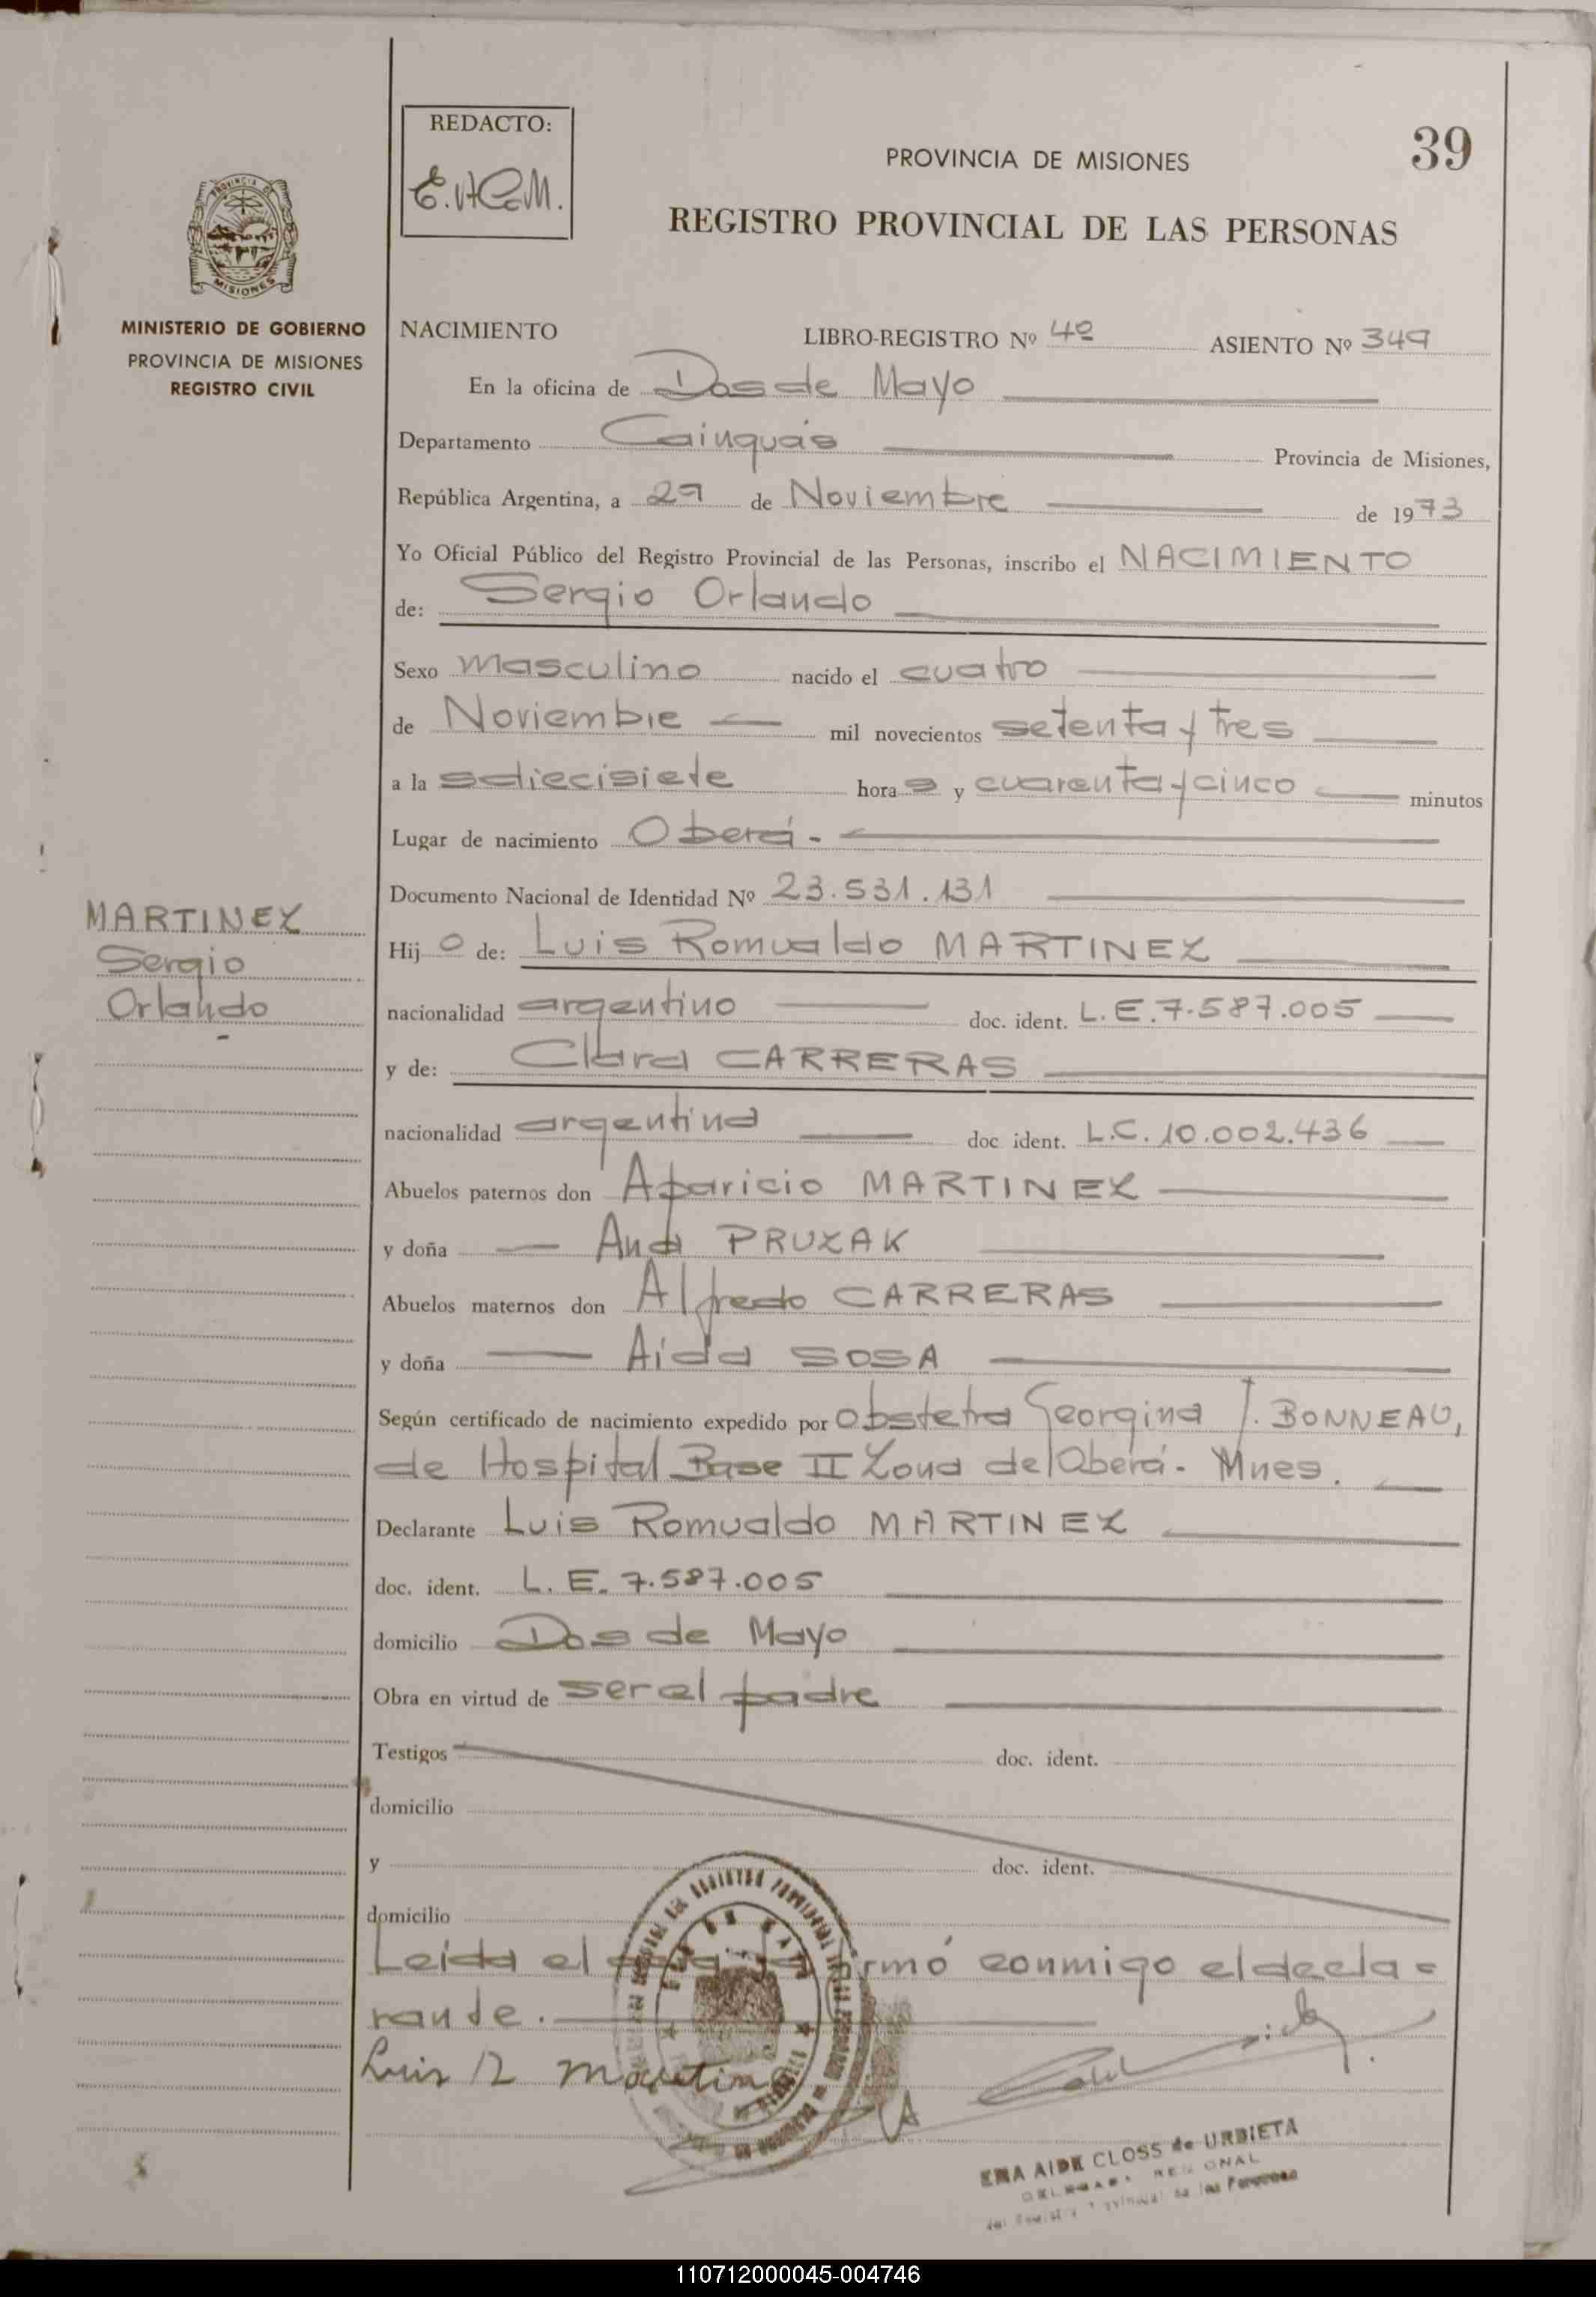 39
REDACTO:
PROVINCIA DE MISIONES
REGISTRO PROVINCIAL DE LAS PERSONAS
PROVINCIA DE
MISIONES
MINISTERIO DE GOBIERNO
PROVINCIA DE MISIONES
REGISTRO CIVIL
NACIMIENTO LIBRO-REGISTRO Nº 4º ASIENTO Nº 349
En la oficina de Dos de Mayo
Departamento Cainguás Provincia de Misiones,
República Argentina, a 29 de Noviembre de 1973
Yo Oficial Público del Registro Provincial de las Personas, inscribo el NACIMIENTO
de: Sergio Orlando
Sexo masculino nacido el cuatro
de Noviembre mil novecientos setenta y tres
a la s diecisiete hora s y cuarenta y cinco minutos
Lugar de nacimiento Oberá.-
Documento Nacional de Identidad Nº 23.531.131
MARTINEZ
Sergio
Orlando
-
Hij o de: Luis Romualdo MARTINEZ
nacionalidad argentino doc. ident. L.E.7.587.005
y de: Clara CARRERAS
nacionalidad argentina doc. ident. L.C. 10.002.436
Abuelos paternos don Aparicio MARTINEZ
y doña Ana PRUZAK
Abuelos maternos don Alfredo CARRERAS
y doña Aida SOSA
Según certificado de nacimiento expedido por Obstetra Georgina J. BONNEAU,
de Hospital Base II Zona de Oberá- Mnes.
Declarante Luis Romualdo MARTINEZ
doc. ident. L.E. 7.587.005
domicilio Dos de Mayo
Obra en virtud de ser el padre
Testigos doc. ident.
domicilio
y doc. ident.
domicilio
Leida el firmó conmigo el decla=
rante.
Luis R Martinez
EMA AIDE CLOSS de URBIETA
DELEGADA REGIONAL
del Registro Provincial de las Personas
110712000045-004746